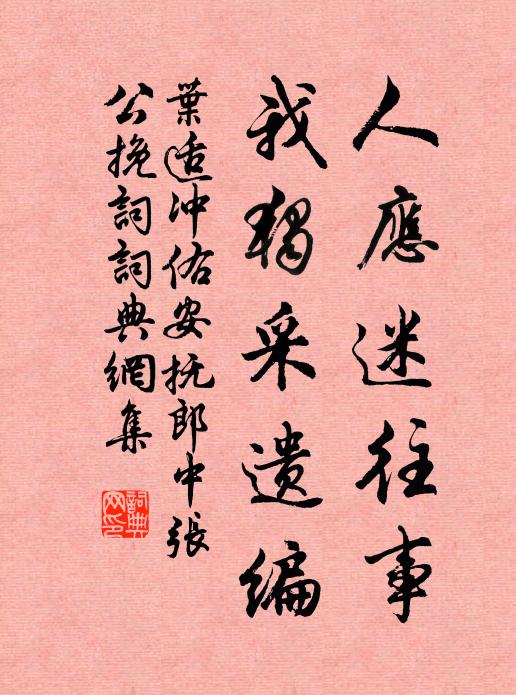 人應迷往事
我獨采遗編
葉适冲佑安抚郎中張
公挽詞詞典網集
詞典
网印